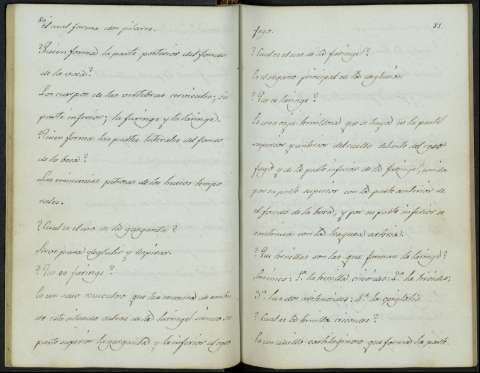 el cual forma dos pilares.
¿Quien forma la parte posterior del fondo
de la boca?
Los cuerpos de las vertebras cervicales; su
parte inferior; la faringe y la laringe.
¿Quien forma las partes laterales del fondo
de la boca?
Las eminencias petrosas de los huesos tempo
rales.
¿Cual es el uso de la garganta?
Sirve para deglutir y respirar.
¿Que es faringe?
Es un saco musculoso que
de esta situado detras de la laringe;
parte superior la garganta y la inferior el eso
81.
fago.
¿Cual es el uso de la faringe?
Es el organo principal de la deglucion.
¿Que es laringe?
Es una caja ternillosa que se halla en la parte
superior y anterior del cuello delante del eso
fago y de la parte inferior de la faringe; unida
por su parte superior con la parte anterior de
el fondo de la boca, y por su parte inferior se
continua con la traquea arteria.
¿Que ternillas son las que forman la laringe?
Son cinco: 1.ª la ternilla cricoides; 2.ª la tiroides;
3.ª las dos aritenoides; 5.ª la epiglotis.
¿Cual es la ternilla cricoides?
Es un anillo cartilaginoso que forma la parte